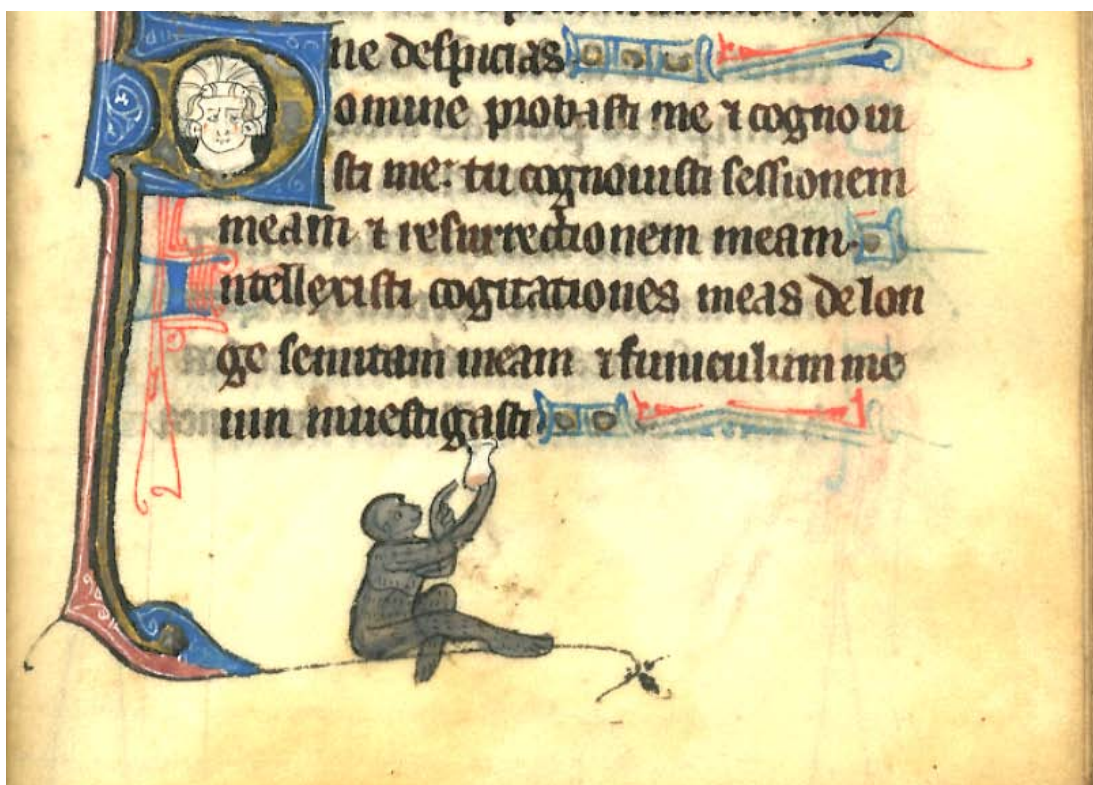 ne despicias
Domine probasti me ⁊ cognoui
sti me: tu cognouisti sessionem
meam ⁊ resurrectionem meam.
Intellexisti cogitationes meas de lon
ge semitam meam ⁊ funiculum me
um inuestigasti